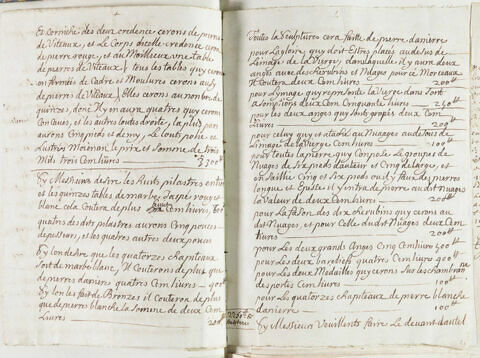 Et Corniche des deux credence cerons de pierre
de Viteaux, et Le Corps dicelle credence cera
de pierre rouge, et au Meillieux vne table
de pierres de Viteaux, tous les tables quy ceron
en formes de Cadre et Moulures cerons au
de pierres de Viteaux, Elles cerons au nombre de
quinzes, donc il y en aura quatres quy cerons
Concaues, et les autres toutte droite, la plus part
aurons Cinq pieds et demy, Le tout polie et
Lustrés Moinan le prix et Somme de trois
Mils trois Cens liures 3300
Sy Messieurs desire les huits pilastres entiers
et les quinzes tables de marbre Jaspe rouge et
blanc cela Coutera de plus Cens liures
quatres des dits pilastres aurons Cinq pouces
depesseur, et les quatres autres deux pouces
Sy lon desire que les quatorzes chapiteaux
Soit de marbre blanc, Jl Couterons de plus que
de pierres daniere quatres Cens liures 400
Sy lon les fait de Bronzes il Couteron de plus
que de pierres blanche la Somme de deux Cens
Liures 200
Toutes la Sculptures cera faitte de pierre danierre
pour La gloire, quy doit Estres placés au desus de
Limage de la Vierge, dans laquelle il y aura deux
anges auec des cherubins et Nuages pour ce Morceaux
Jl Coutera deux Cens liures 200
pour Lymage quy represente la Vierge dans Son
asomption deux Cens Cinquante liures 250
pour les deux anges quy sont gropés deux Cens
liures 200
pour celuy quy et ataché au Nuages au desous de
Limage de la Vierge Cens liures 100
pour toutes la pierre quy Compose Le groupes de
Nuages de Six pieds de auteur et Cinq de large et
en Saillie Cinq et Six pieds ou il faux des pierres
longue et Epaisse et y entra de pierre au dit Nuages
la Valeur de deux Cens liures 200
pour La fason des dix cherubins quy cerons au
dit Nuages, et pour Celle du dit Nuages deux Cens
liures 200
pour Les deux grands Anges Cinq Cens liures 500
pour Les deux bas relief quatres Cens liures 400
pour Les deux Medailles quy cerons Sus les chambran
des portes Cens liures 100
pour Les quatorzes chapiteaux de pierre blanche
danierre 100
Sy Messieurs Veuillents faire Le deuant dautel